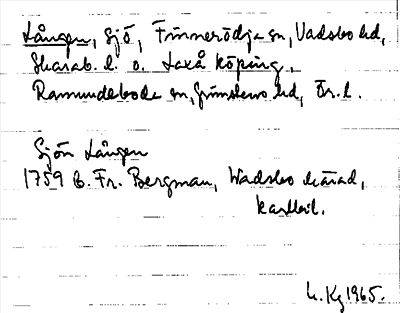 Lången, sjö, Finnerödja sn, Vadsbo hd,
Skarab. l. o. Laxå köping,
Ramundeboda sn, Grimstens hd, Ör. l.
Sjön Lången
1759 B. Fr. Bergman, Wadsbo härad,
kartbil.
1965.